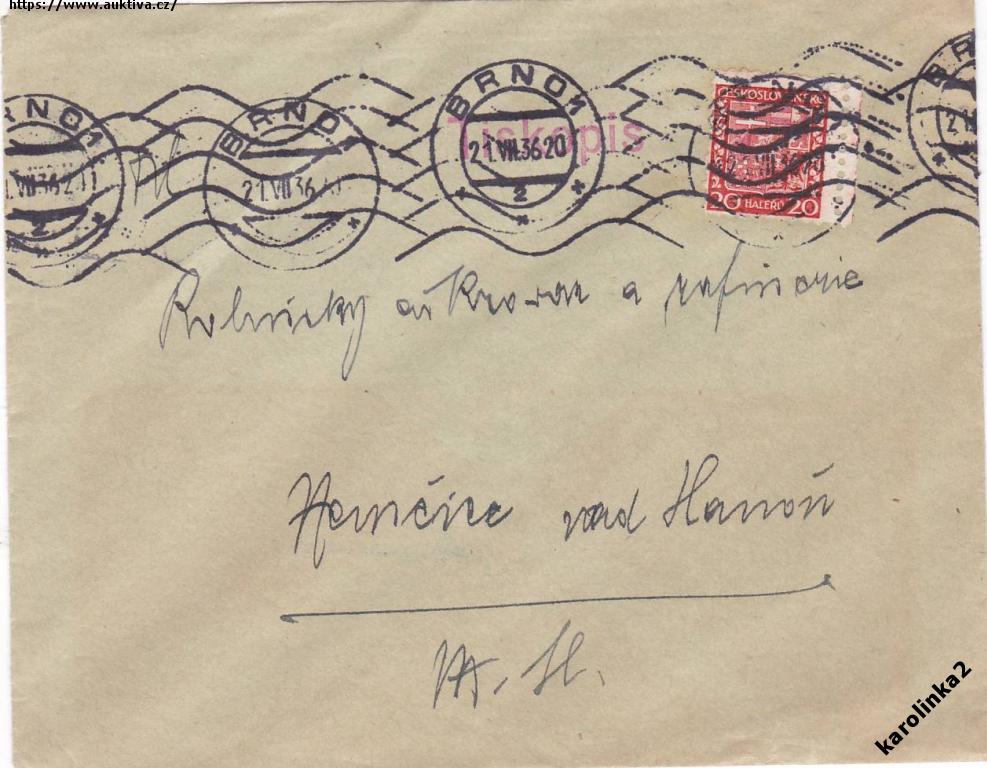 https://www.auktiva.cz/
BRNO 1
21.VII.36 20
2
BRNO
21.VII.36
BRNO 1
21.VII.36 20
2
Tiskopis
ČESKOSLOVENSKO
20 HALÉŘŮ 20
Rolnický cukrovar a rafinerie
Němčice nad Hanou
karolinka2